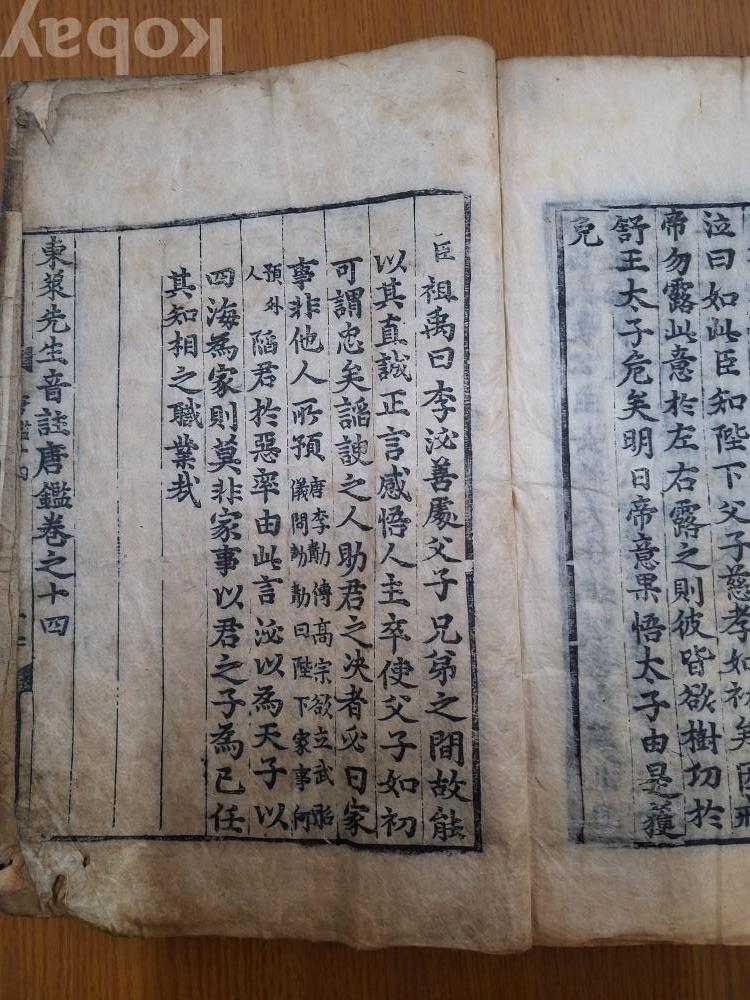 泣曰如此臣知陛下父子慈孝如初矣
帝勿露此意於左右露之則彼皆欲樹功於
舒王太子危矣明日帝意果悟太子由是獲
免
臣祖禹曰李泌善處父子兄弟之間故能
以其直誠正言感悟人主卒使父子如初
可謂忠矣謟諛之人助君之决者必曰家
事非他人所預唐李勣傳高宗欲立武昭
儀問勣勣曰陛下家事何
預外
人陷君於惡率由此言泌以為天子以
四海為家則莫非家事以君之子為己任
其知相之職業哉
東萊先生音註唐鑑卷之十四
kobay